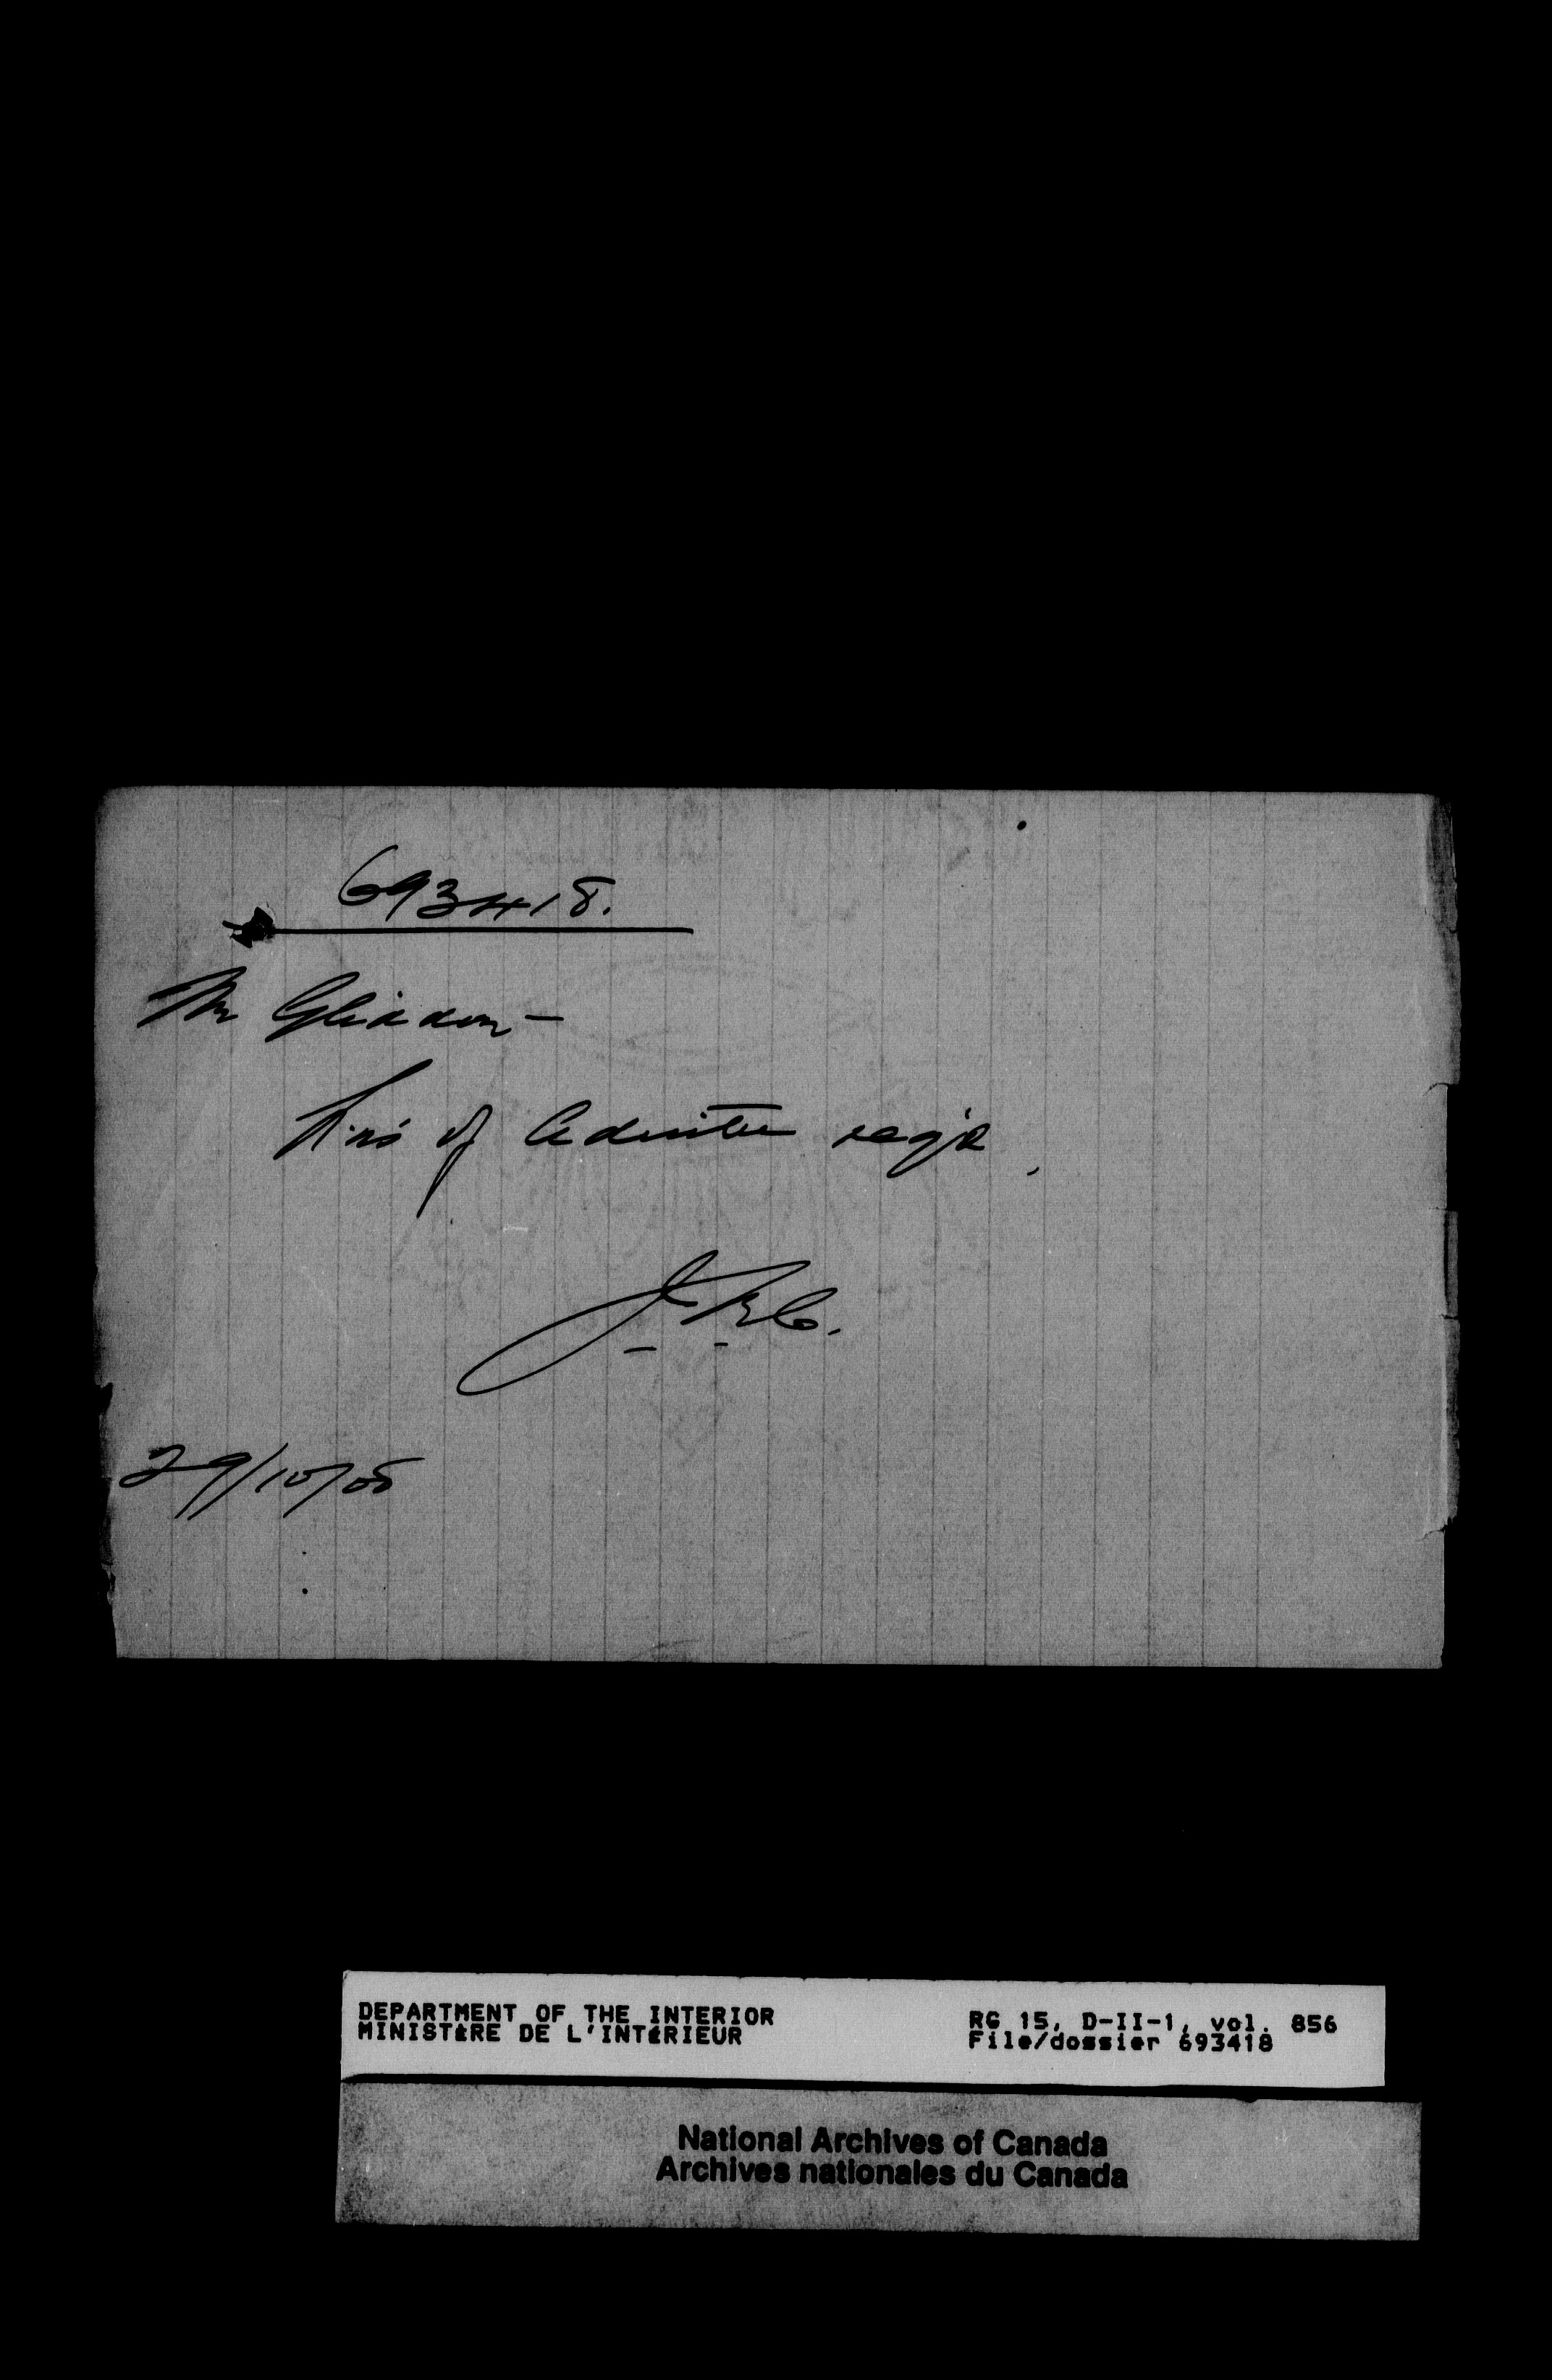 693418.
Mr Gliddon —
of req'd
J.
29/10/05
DEPARTMENT OF THE INTERIOR
MINISTÈRE DE L'INTÉRIEUR
RG 15, D-II-1, vol. 856
File/dossier 693418
National Archives of Canada
Archives nationales du Canada